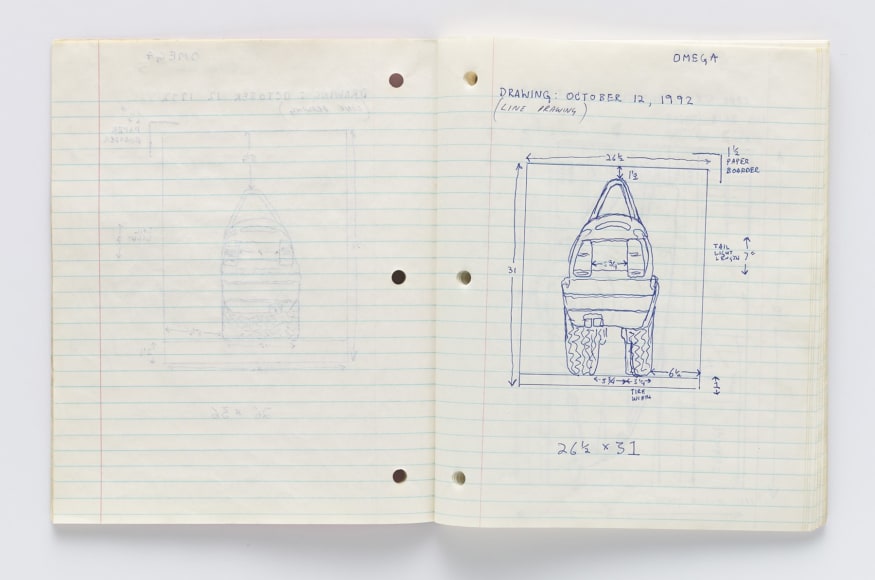 OMEGA
DRAWING: OCTOBER 12, 1992
(LINE DRAWING)
26½
1½
PAPER
BOARDER
1½
31
TAIL
LIGHT
LENGTH 7"
6½
TIRE
WIDTH
26½ × 31
26 × 36